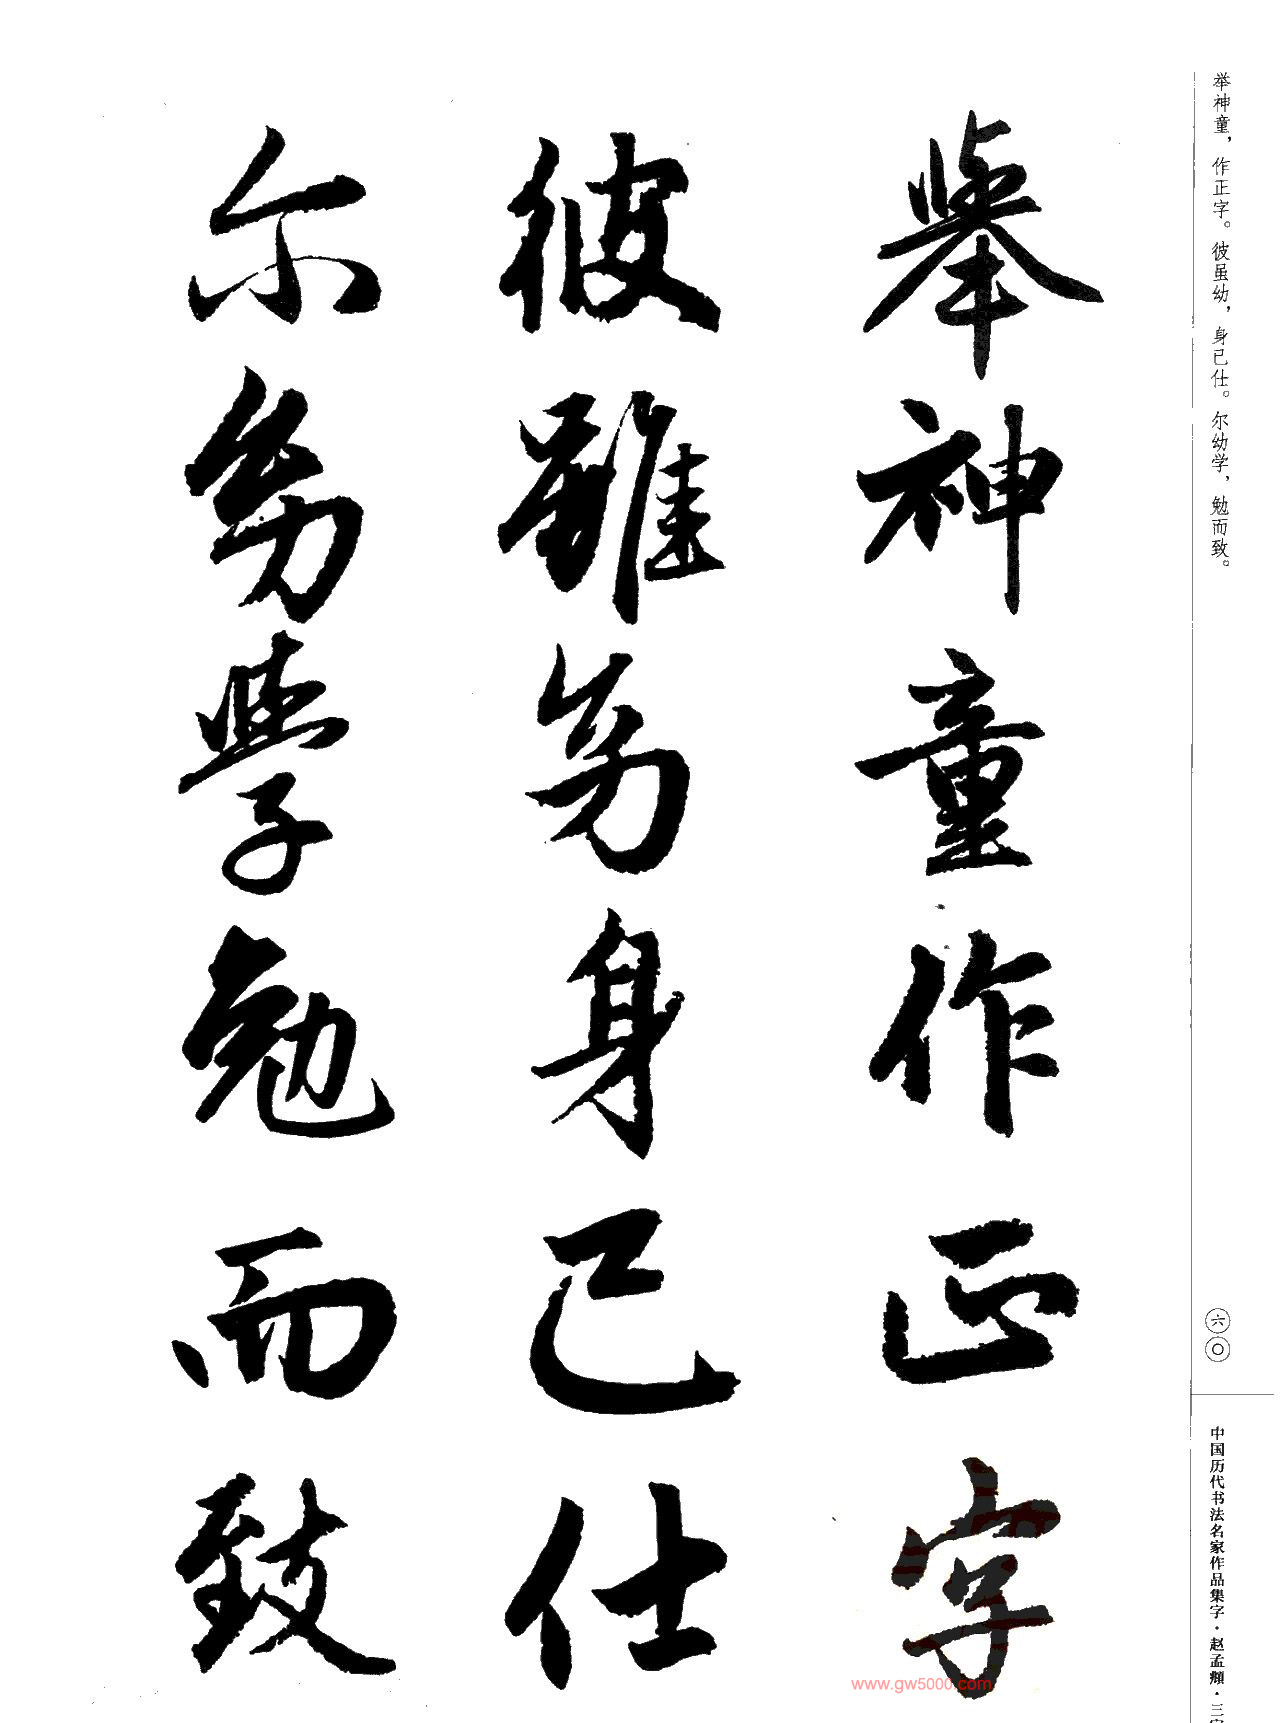 举神童，作正字。彼虽幼，身已仕。尔幼学，勉而致。
舉神童作正字
彼雖幼身已仕
尔幼學勉而致
六〇
中国历代书法名家作品集字·赵孟頫·三
www.gw5000.com